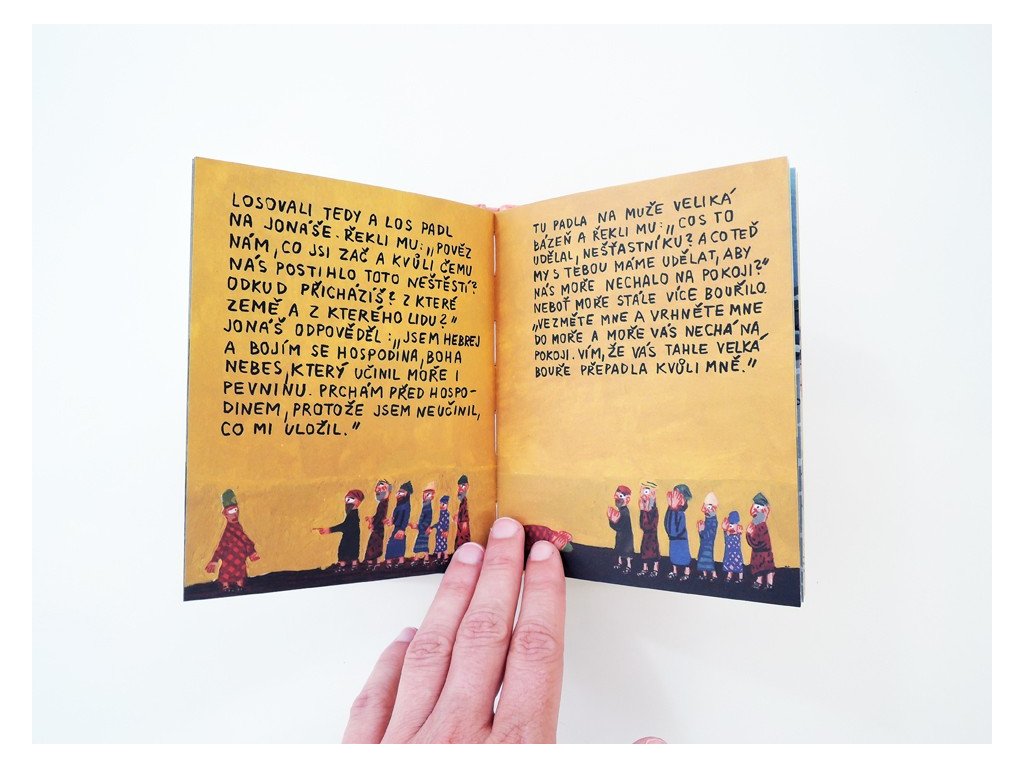 LOSOVALI TEDY A LOS PADL
NA JONÁŠE. ŘEKLI MU: „POVĚZ
NÁM, CO JSI ZAČ A KVŮLI ČEMU
NÁS POSTIHLO TOTO NEŠTĚSTÍ?
ODKUD PŘICHÁZÍŠ? Z KTERÉ
ZEMĚ A Z KTERÉHO LIDU?"
JONÁŠ ODPOVĚDĚL: „JSEM HEBREJ
A BOJÍM SE HOSPODINA, BOHA
NEBES, KTERÝ UČINIL MOŘE I
PEVNINU. PRCHÁM PŘED HOSPO-
DINEM, PROTOŽE JSEM NEUČINIL,
CO MI ULOŽIL."
TU PADLA NA MUŽE VELIKÁ
BÁZEŇ A ŘEKLI MU: „COS TO
UDĚLAL, NEŠŤASTNÍKU? A CO TEĎ
MY S TEBOU MÁME UDĚLAT, ABY
NÁS MOŘE NECHALO NA POKOJI?"
NEBOŤ MOŘE STÁLE VÍCE BOUŘILO.
„VEZMĚTE MNE A VRHNĚTE MNE
DO MOŘE A MOŘE VÁS NECHÁ NA
POKOJI. VÍM, ŽE VÁS TAHLE VELKÁ
BOUŘE PŘEPADLA KVŮLI MNĚ."